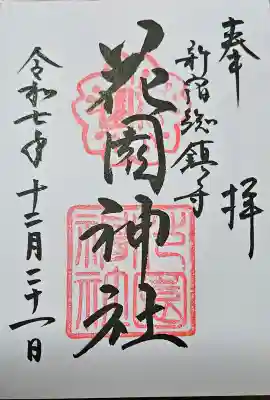 奉拝
新宿総鎮守
花園神社
令和七年十二月二十一日
花園神社